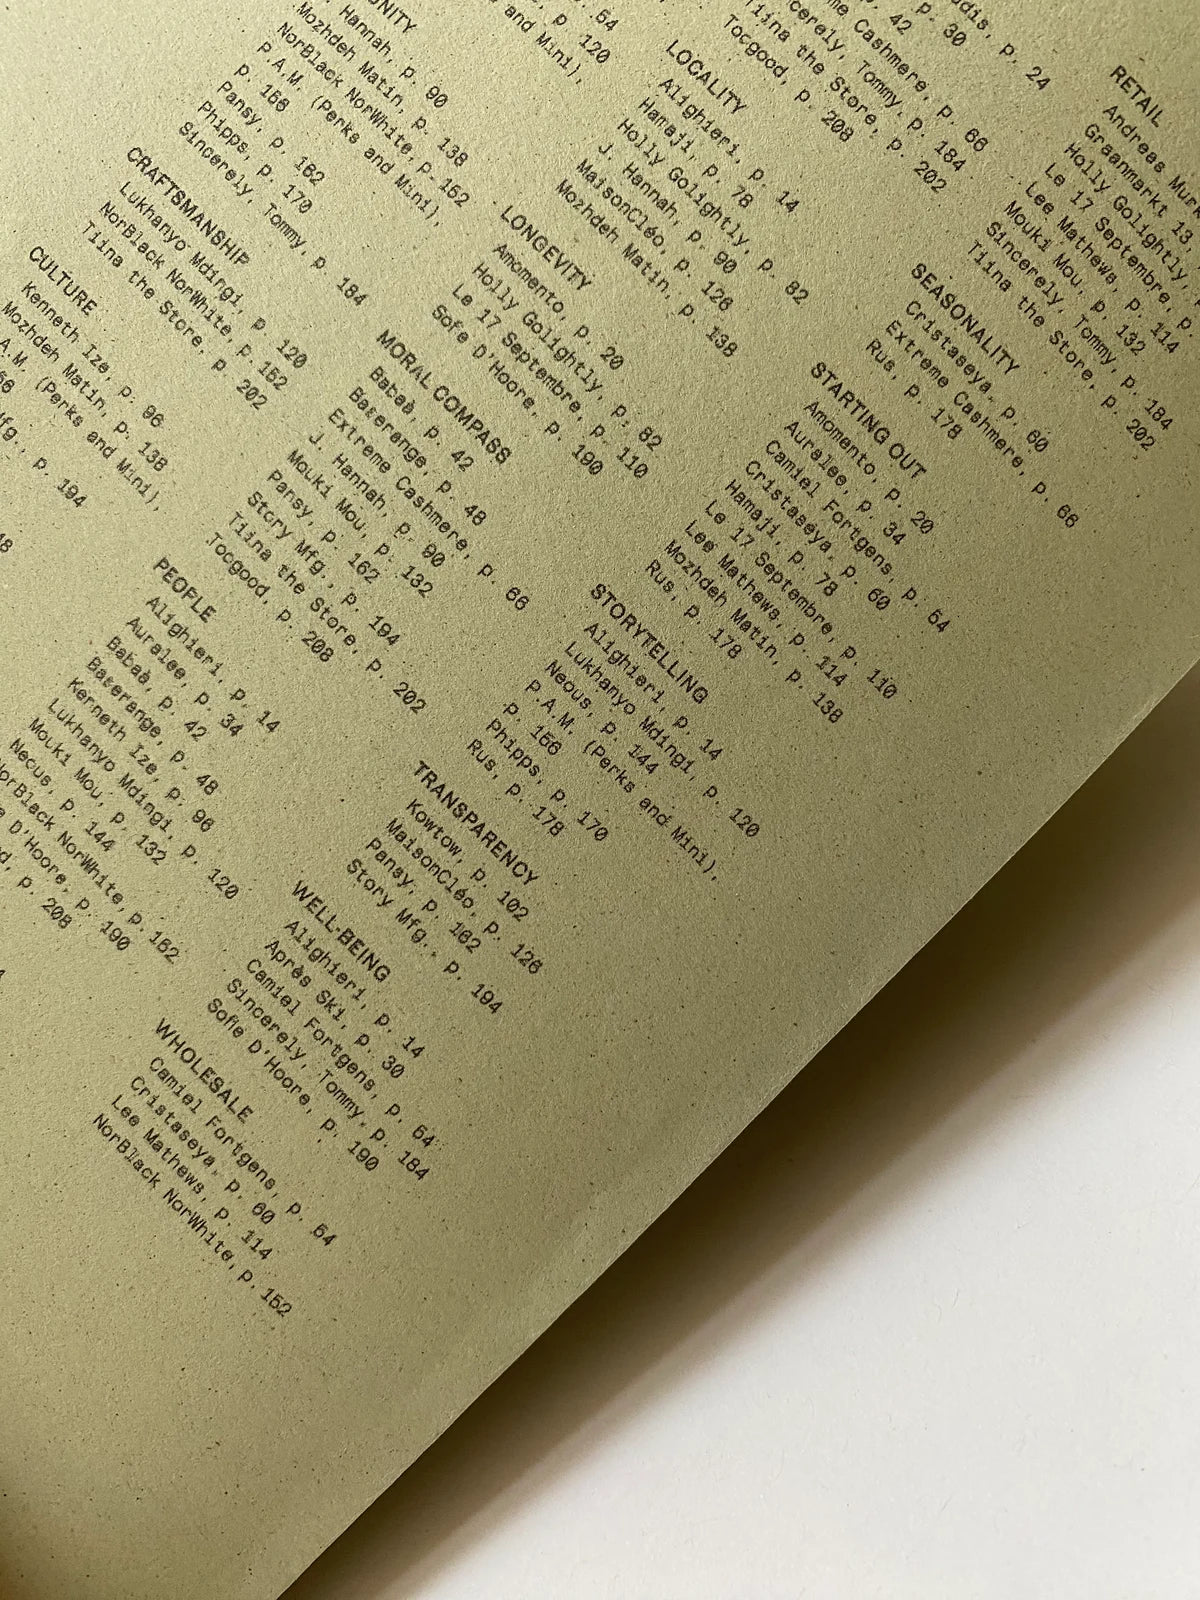 54
p. 120
and Mini),
Hannah, p. 90
Mozhdeh Matin, p. 138
NorBlack NorWhite, p. 152
P.A.M. (Perks and Mini),
p. 156
Pansy, p. 162
Phipps, p. 170
Sincerely, Tommy, p. 184
CRAFTSMANSHIP
Lukhanyo Mdingi, p. 120
NorBlack NorWhite, p. 152
Tiina the Store, p. 202
CULTURE
Kenneth Ize, p. 96
Mozhdeh Matin, p. 138
A.M. (Perks and Mini),
Mfg., p. 194
p. 24
p. 30
p. 42
Cashmere, p. 66
Sincerely, Tommy, p. 184
Tiina the Store, p. 202
Toogood, p. 208
LOCALITY
Alighieri, p. 14
Hamaji, p. 78
Holly Golightly, p. 82
J. Hannah, p. 90
MaisonCléo, p. 126
Mozhdeh Matin, p. 138
LONGEVITY
Amomento, p. 20
Holly Golightly, p. 82
Le 17 Septembre, p. 110
Sofie D'Hoore, p. 190
MORAL COMPASS
Babaà, p. 42
Baserange, p. 48
Extreme Cashmere, p. 66
J. Hannah, p. 90
Mouki Mou, p. 132
Pansy, p. 162
Story Mfg., p. 194
Tiina the Store, p. 202
Toogood, p. 208
PEOPLE
Alighieri, p. 14
Auralee, p. 34
Babaà, p. 42
Baserange, p. 48
Kenneth Ize, p. 96
Lukhanyo Mdingi, p. 120
Mouki Mou, p. 132
Neous, p. 144
NorBlack NorWhite, p. 152
D'Hoore, p. 190
p. 208
RETAIL
Andreas
Graanmarkt 13,
Holly Golightly,
Le 17 Septembre, p.
Lee Mathews, p. 114
Mouki Mou, p. 132
Sincerely, Tommy, p. 184
Tiina the Store, p. 202
SEASONALITY
Cristaseya, p. 60
Extreme Cashmere, p. 66
Rus, p. 178
STARTING OUT
Amomento, p. 20
Auralee, p. 34
Camiel Fortgens, p. 54
Cristaseya, p. 60
Hamaji, p. 78
Le 17 Septembre, p. 110
Lee Mathews, p. 114
Mozhdeh Matin, p. 138
Rus, p. 178
STORYTELLING
Alighieri, p. 14
Lukhanyo Mdingi, p. 120
Neous, p. 144
P.A.M. (Perks and Mini),
p. 156
Phipps, p. 170
Rus, p. 178
TRANSPARENCY
Kowtow, p. 102
MaisonCléo, p. 126
Pansy, p. 162
Story Mfg., p. 194
WELL-BEING
Alighieri, p. 14
Après Ski, p. 30
Camiel Fortgens, p. 54
Sincerely, Tommy, p. 184
Sofie D'Hoore, p. 190
WHOLESALE
Camiel Fortgens, p. 54
Cristaseya, p. 60
Lee Mathews, p. 114
NorBlack NorWhite, p. 152